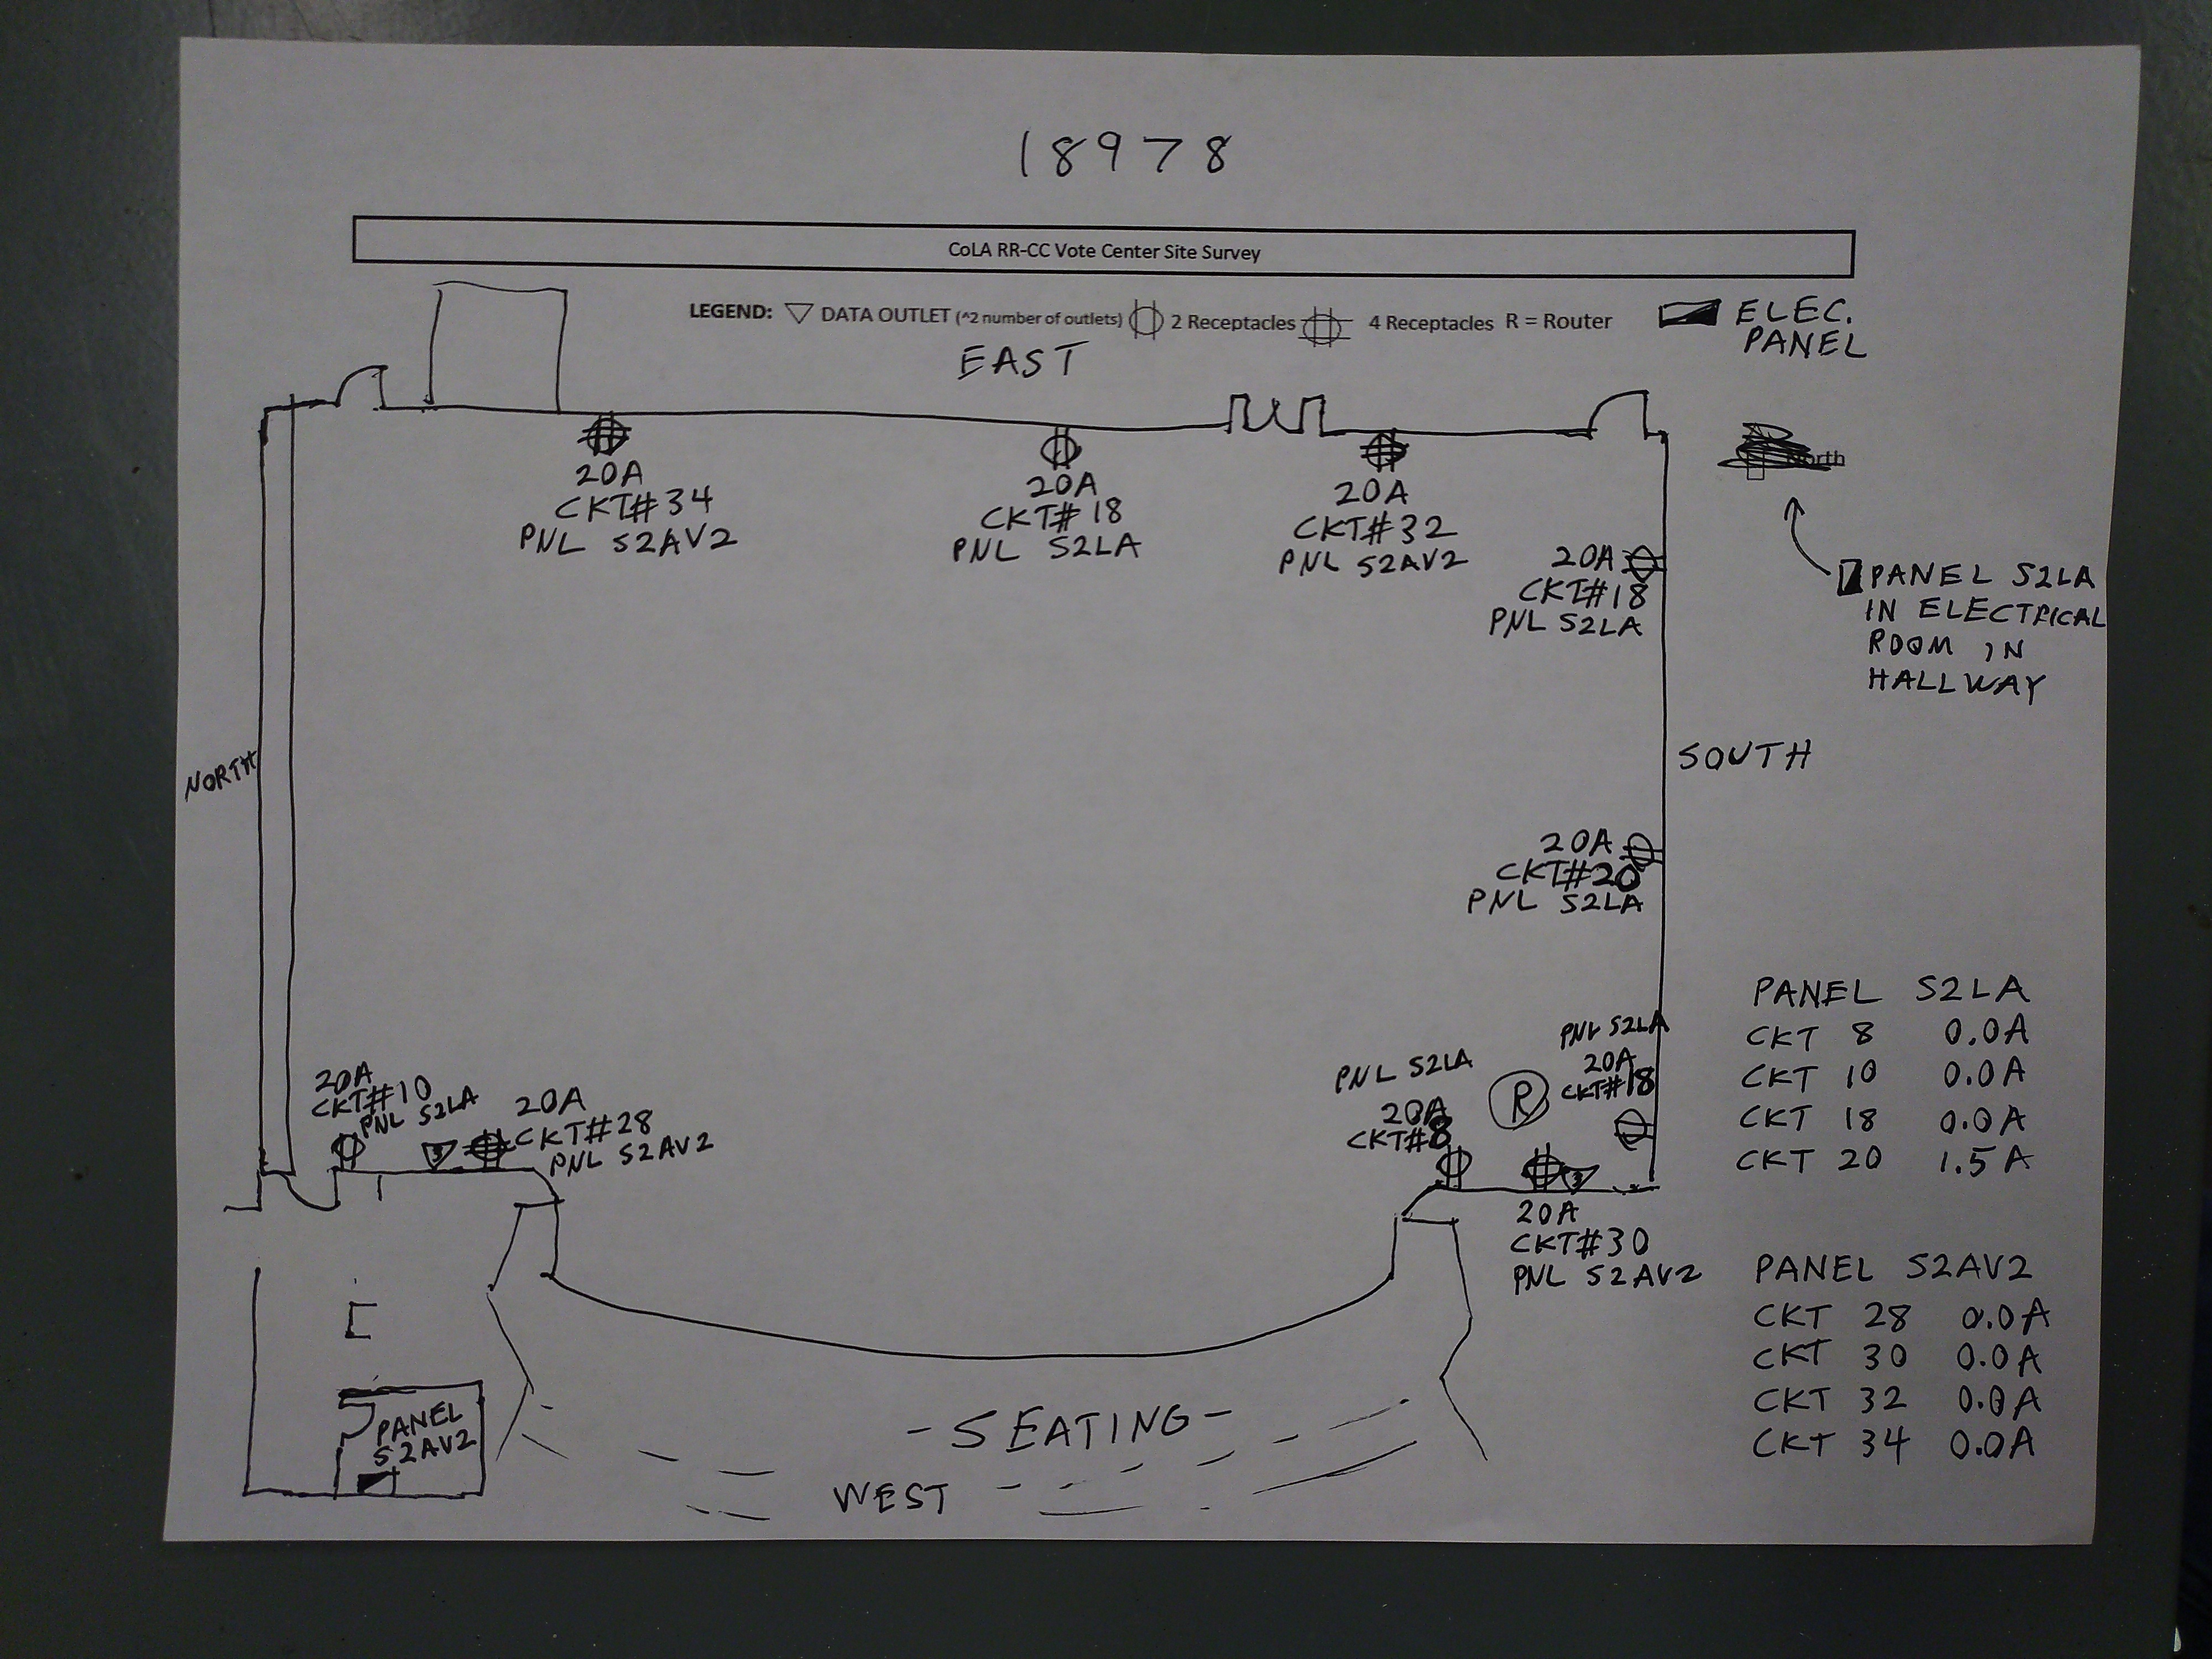 18978
CoLA RR-CC Vote Center Site Survey
LEGEND: DATA OUTLET (^2 number of outlets) 2 Receptacles 4 Receptacles R = Router
ELEC.
PANEL
EAST
North
20A
CKT#34
PNL S2AV2
20A
CKT#18
PNL S2LA
20A
CKT#32
PNL S2AV2
20A
CKT#18
PNL S2LA
PANEL S2LA
IN ELECTRICAL
ROOM IN
HALLWAY
NORTH
SOUTH
20A
CKT#20
PNL S2LA
20A
CKT#10
PNL S2LA
3
20A
CKT#28
PNL S2AV2
PNL S2LA
20A
CKT#8
R
PNL S2LA
20A
CKT#18
20A
CKT#30
PNL S2AV2
PANEL S2LA
CKT 8 0.0A
CKT 10 0.0A
CKT 18 0.0A
CKT 20 1.5A
PANEL S2AV2
CKT 28 0.0A
CKT 30 0.0A
CKT 32 0.0A
CKT 34 0.0A
PANEL
S2AV2
-SEATING-
WEST